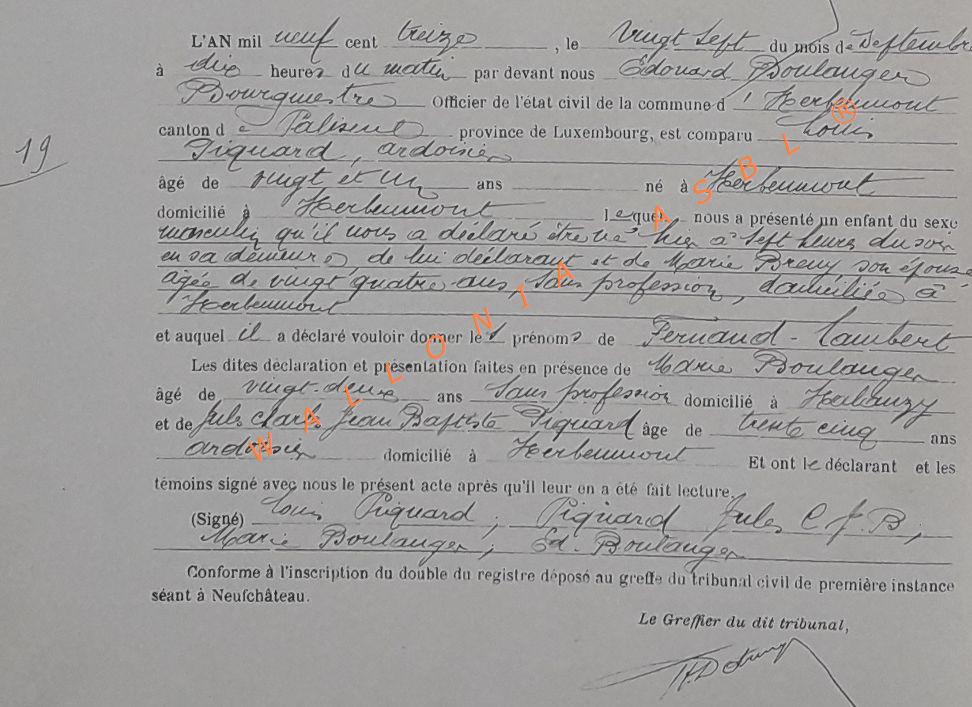 L'AN mil neuf cent treize, le vingt sept du mois de Septembre
à dix heures du matin par devant nous Edouard Boulanger
Bourgmestre Officier de l'état civil de la commune d'Herbeumont
canton de Paliseul province de Luxembourg, est comparu Louis
19
Piquard, ardoisier
âgé de vingt et un ans né à Herbeumont
domicilié à Herbeumont Lequel, nous a présenté un enfant du sexe
masculin qu'il nous a déclaré être né hier à sept heures du soir
en sa demeure, de lui déclarant et de Marie, son épouse
âgée de vingt quatre ans, sans profession, domiciliée à
Herbeumont
et auquel il a déclaré vouloir donner les prénoms de Fernand-Lambert
Les dites déclaration et présentation faites en présence de Marie Boulanger
âgé de vingt-deux ans Sans profession domicilié à Herbeumont
et de Jules Charles Jean Baptiste Piquard âge de trente cinq ans
ardoisier domicilié à Herbeumont Et ont le déclarant et les
témoins signé avec nous le présent acte après qu'il leur en a été fait lecture.
(Signé) Louis Piquard; Piquard Jules C. J. B.;
Marie Boulanger; Ed. Boulanger
Conforme à l'inscription du double du registre déposé au greffe du tribunal civil de première instance
séant à Neufchâteau.
Le Greffier du dit tribunal,
WALLONIA ASBL ®